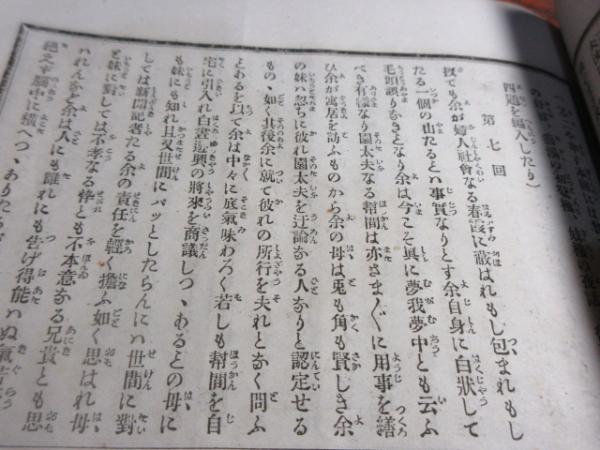 四題を揷入したり)
第七回
扨でも余が婦人社會なる春霞に蔽はれもし包まれもし
たる一個の山たるとハ事實なりとす余自身に白狀して
毛頭譲りなきとなり余は今こそ眞に夢我夢中とも云ふ
べき有樣なり園太夫なる幇間は亦さま〴〵に用事を繕
ひ余が寓居を訪ふものから余の母は兎も角も賢しき余
の妹ハ忽ちに彼れ園太夫を迂論なる人なりと認定せる
もの、如く其後余に就て彼れの所行を夫れとなく問ふ
とあるを以て余は中々に底氣味わろく若しも幇間を自
宅に引入れ白晝遊興の將來を商議しつゝあるとの母に
も妹にも知れ且又世間にパッとしたらんにハ世間に對
しては新聞記者たる余の責任を輕く擔ふ如く思はれ母
と妹に對しては不孝なる悴とも不本意なる兄貴とも思
ハれんかと余は人にも誰れにも告げ得能ハぬ
絶えず腦中に橫へつゝありたら